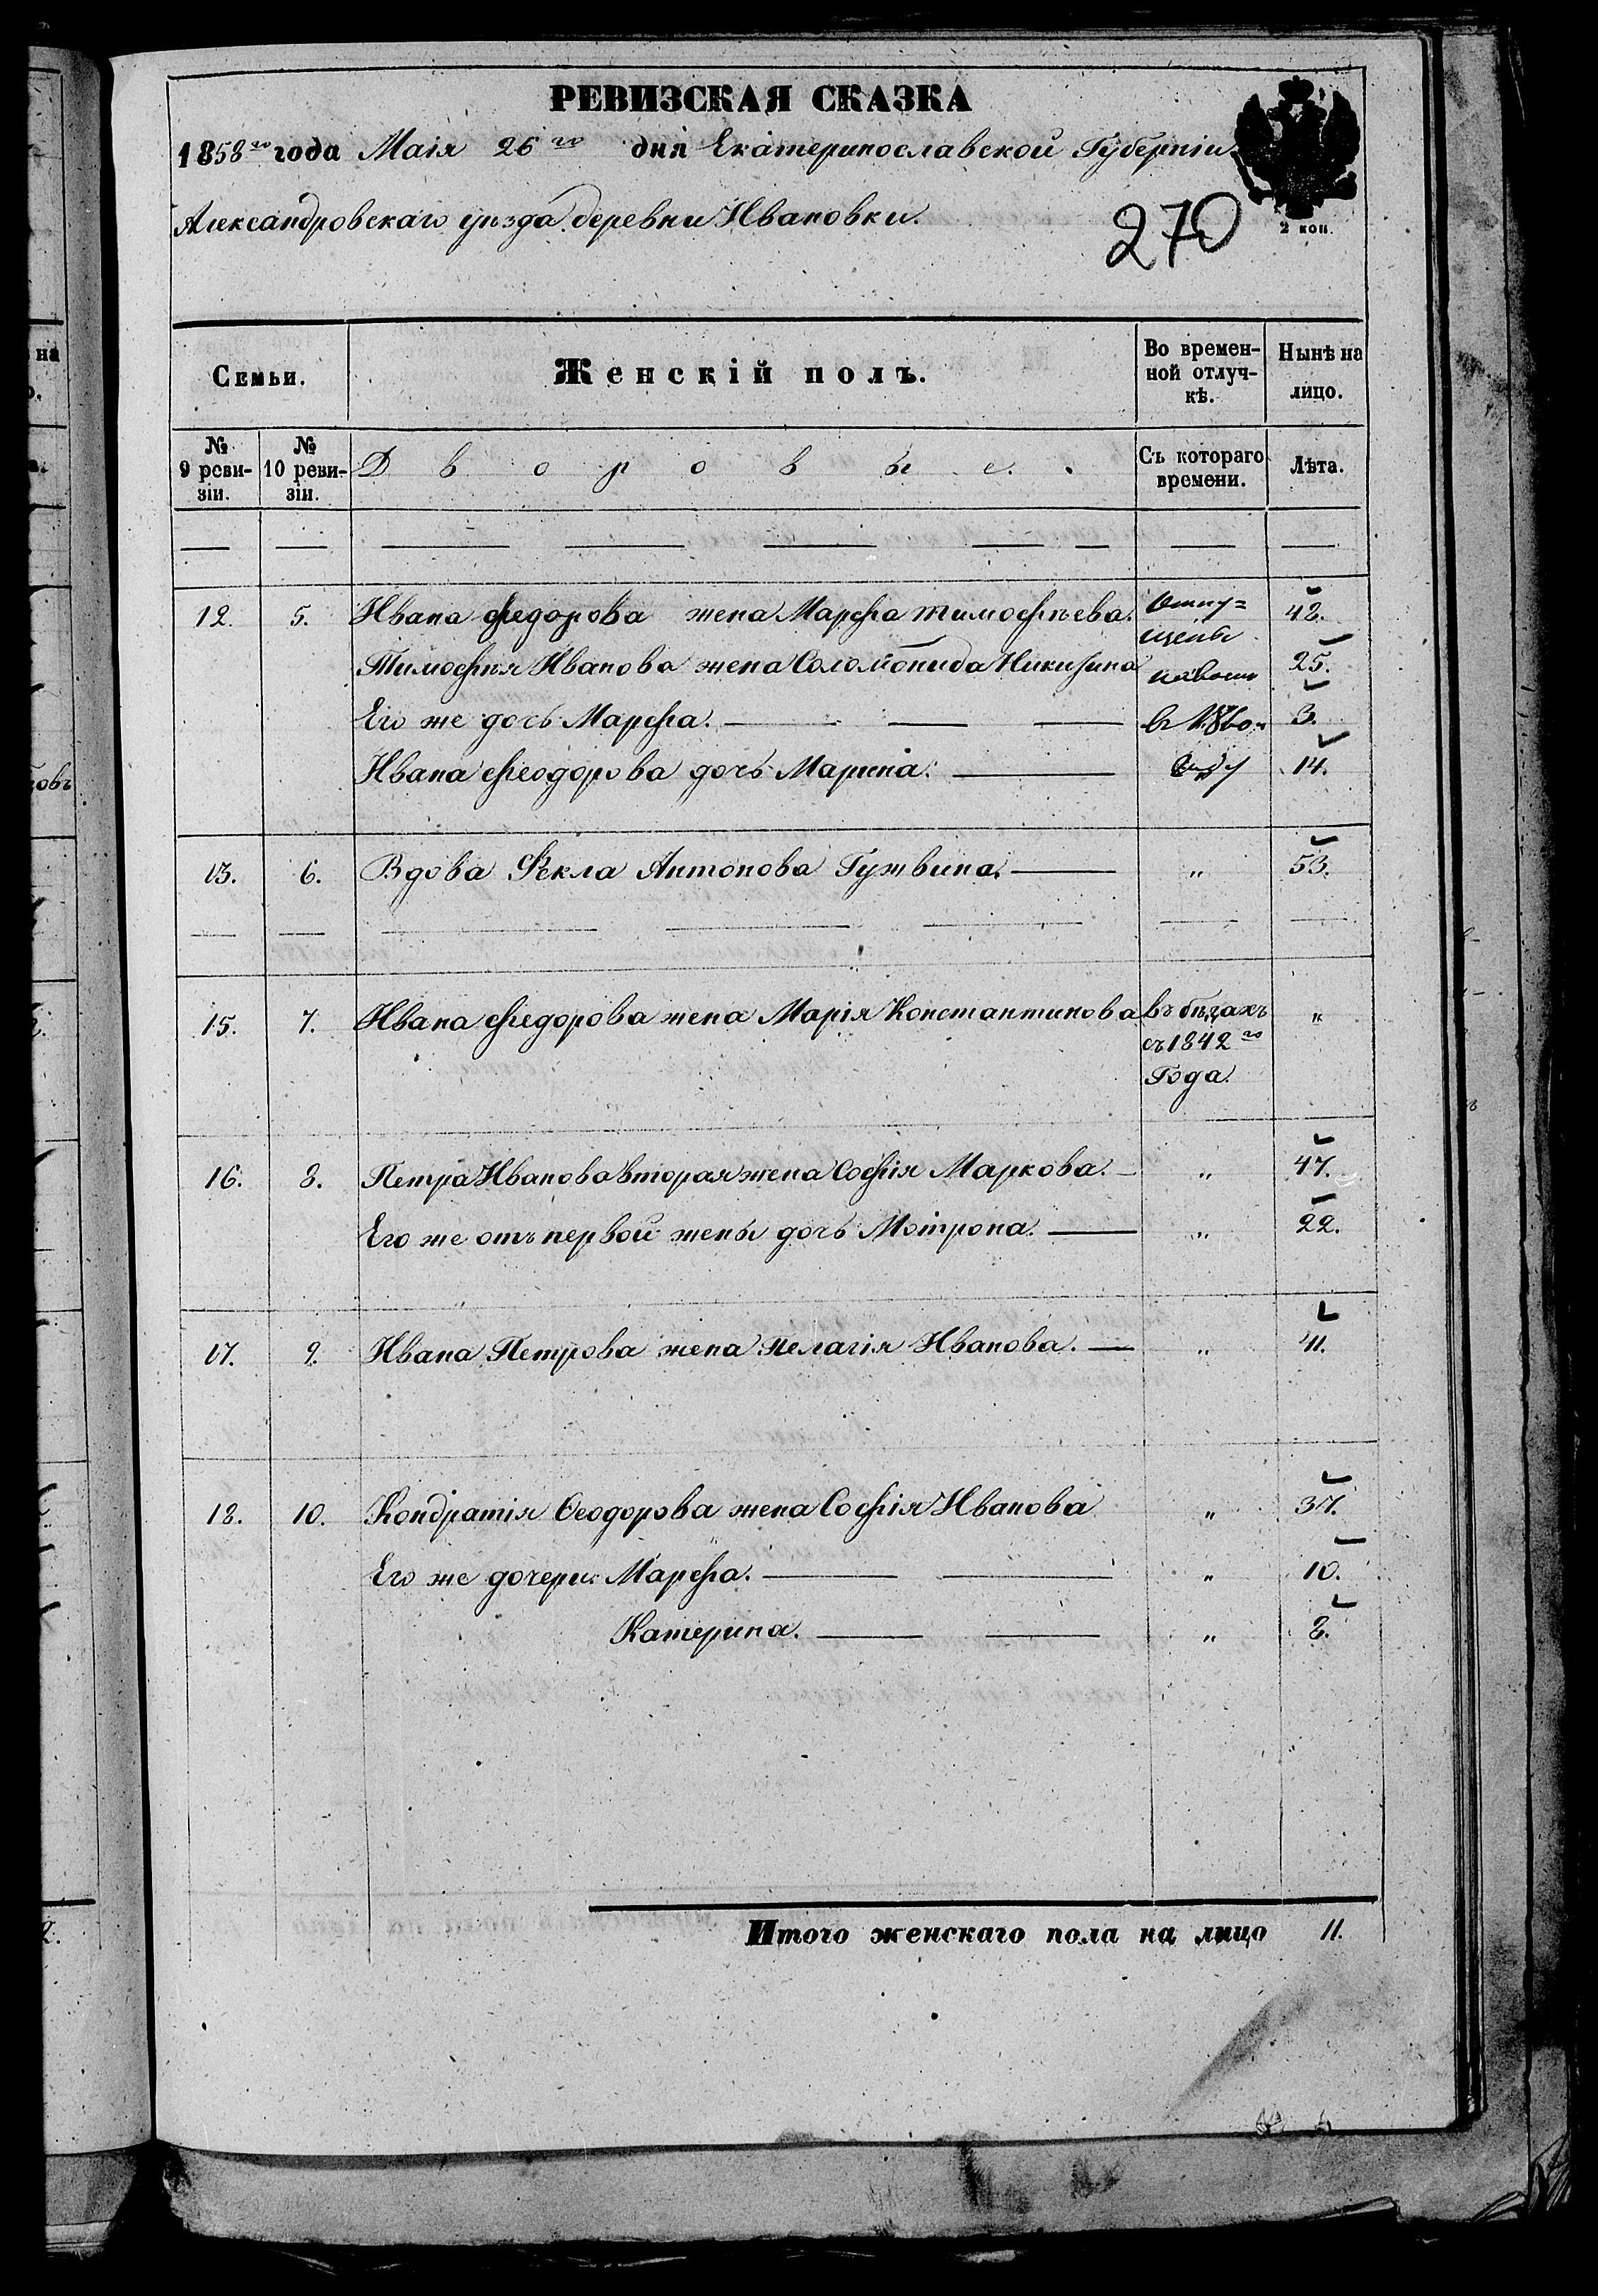 РЕВИЗСКАЯ СКАЗКА
1858го года Маія 26го дня Екатеринославской Губерніи
Александровскаго уѣзда деревни Ивановки.
270
2 коп.
Семьи. Женскій полъ. Во времен-ной отлуч-кѣ. Нынѣ на лицо.
№ 9 реви-зіи. № 10 реви-зіи. Дворовые. Съ котораго времени. Лѣта.
12. 5. Ивана Федорова жена Марфа Тимофѣева. Отпу= 42.
щены
Тимофѣя Иванова жена Соломонида Никитина 25.
Его же дочь Марфа. в 1860 3.
Ивана Феодорова дочь Марина. году 14.
13. 6. Вдова Фекла Антонова Гужвина. „ 53.
15. 7. Ивана Федорова жена Марія Константинова въ бѣгахъ „
съ 1842го
Года.
16. 8. Петра Иванова вторая жена Софія Маркова. „ 47.
Его же отъ первой жены дочь Мотрона. „ 22.
17. 9. Ивана Петрова жена Пелагія Иванова. „ 41.
18. 10. Кондратія Ѳеодорова жена Софія Иванова „ 37.
Его же дочери: Марфа. „ 10.
Катерина. „ 8.
Итого женскаго пола на лицо 11.